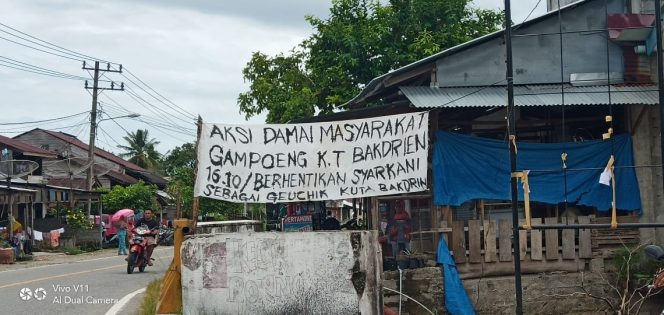 AKSI DAMAI MASYARAKAT
GAMPOENG K.T BAKDRIEN
16.10/BERHENTIKAN SYARKANI
SEBAGAI GEUCHIK KUTA BAKDRIN
vivo V11
AI Dual Camera